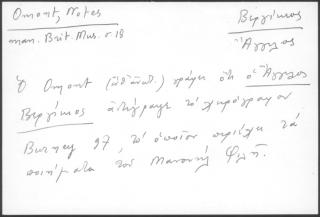 Omont, Notes
man. Brit. Mus. σ 18
Βεργίκιος
Ἄγγελος
Ὁ Omont (αὐτόθι) γράφει ὅτι ὁ Ἄγγελος
Βεργίκιος ἀντέγραψε τὸ χειρόγραφον
Burney 97, τὸ ὁποῖον περιέχει τὰ
ποιήματα τοῦ Μανουὴλ Φιλῆ.